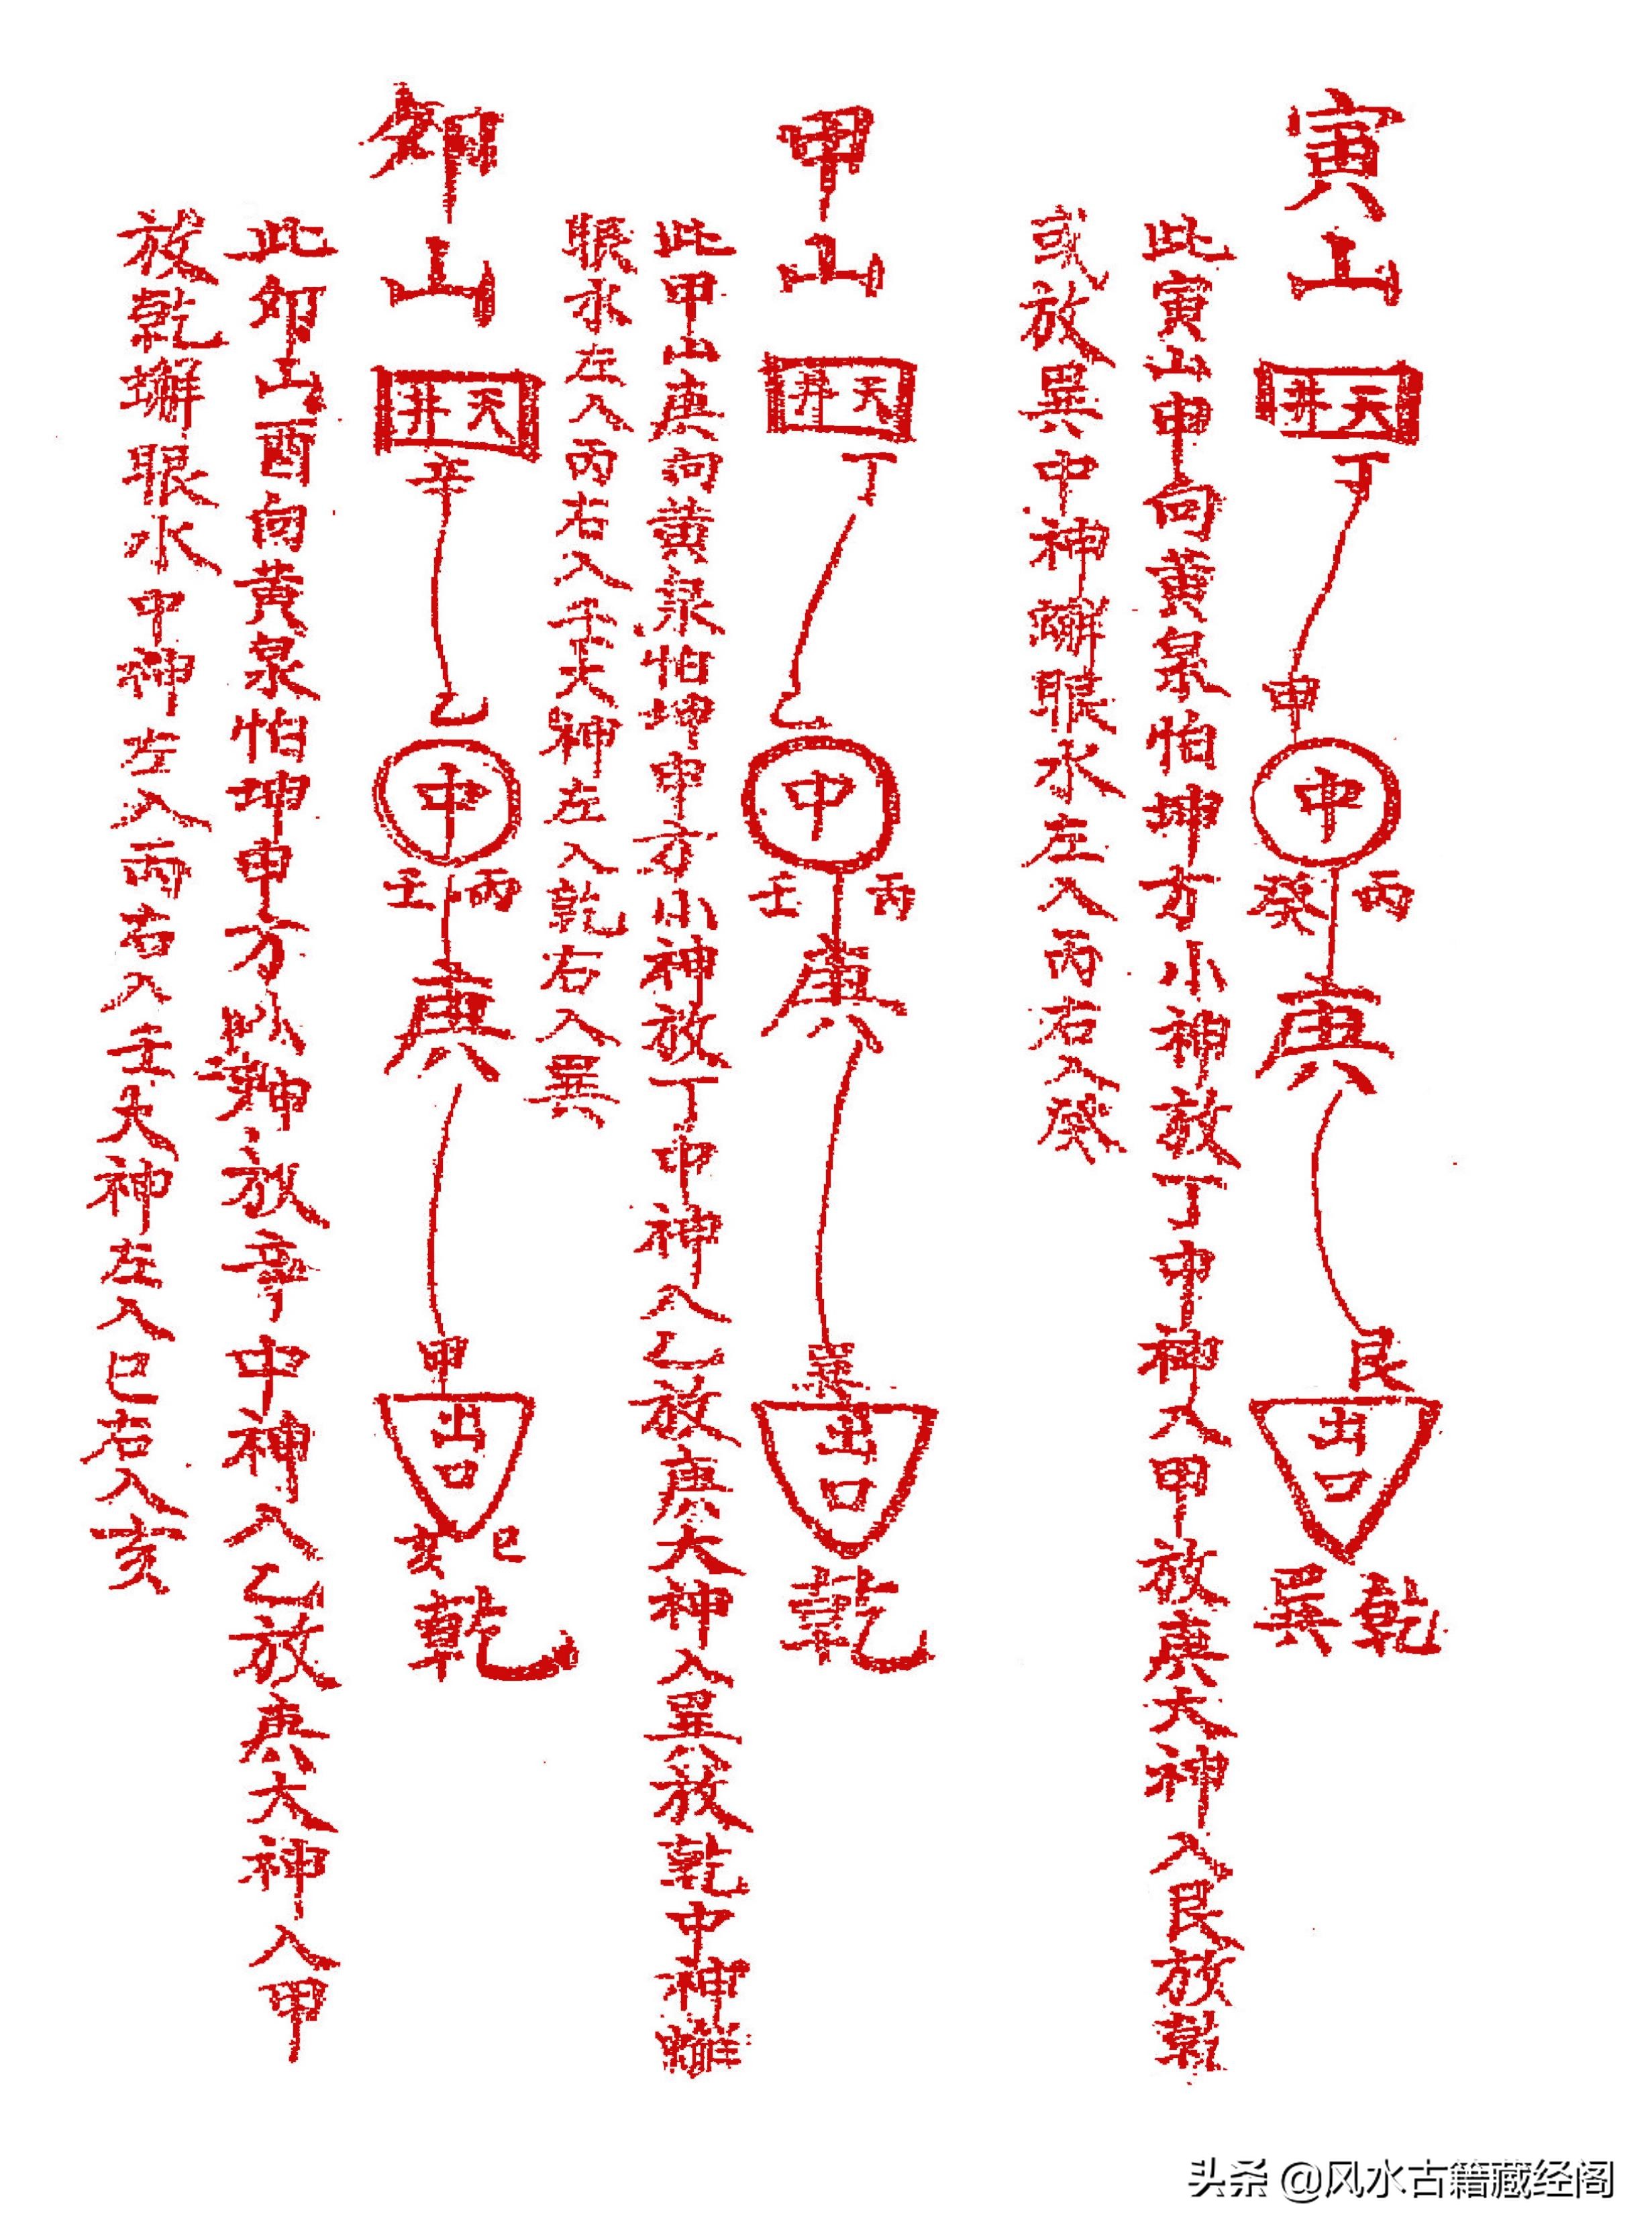 寅山
天井
丁
申
中
丙
癸
庚
艮
出口
乾
巽
此寅山申向黄泉怕坤方小神放丁中神入甲放庚大神入艮放乾
或放巽中神蠏眼水左入丙右入癸
甲山
天井
丁
乙
中
丙
壬
庚
巽
出口
乾
此甲山庚向黄泉怕坤申方小神放丁中神入乙放庚大神入巽放乾中神
眼水左入丙右入壬大神左入乾右入巽
夘山
天井
辛
乙
中
丙
壬
庚
甲
出口
巳
亥
乾
此夘山酉向黄泉怕坤申方神放辛中神入乙放庚大神入甲
放乾蠏眼水中神左入丙右入壬大神左入巳右入亥
头条 @风水古籍藏经阁